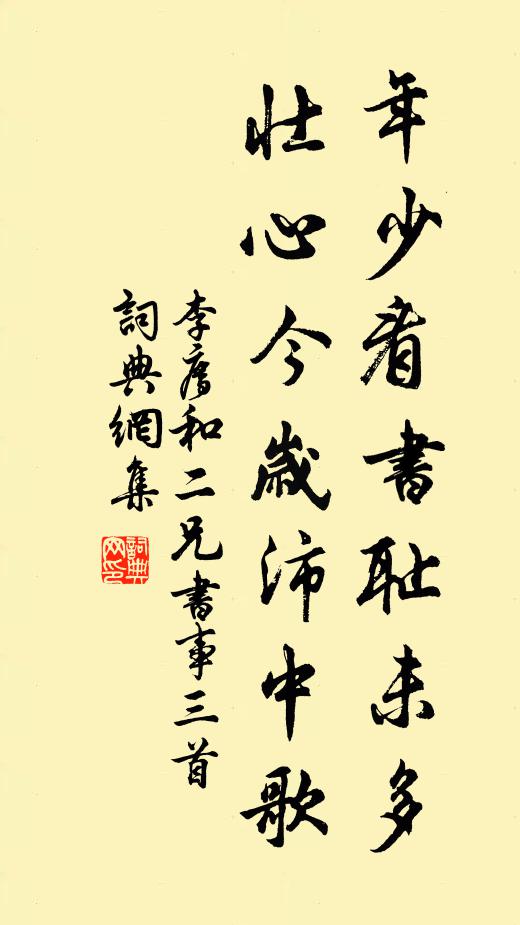 年少看書耻未多
壯心今歲沛中歌
李廌和二兄書事三首
詞典網集
詞典
网印